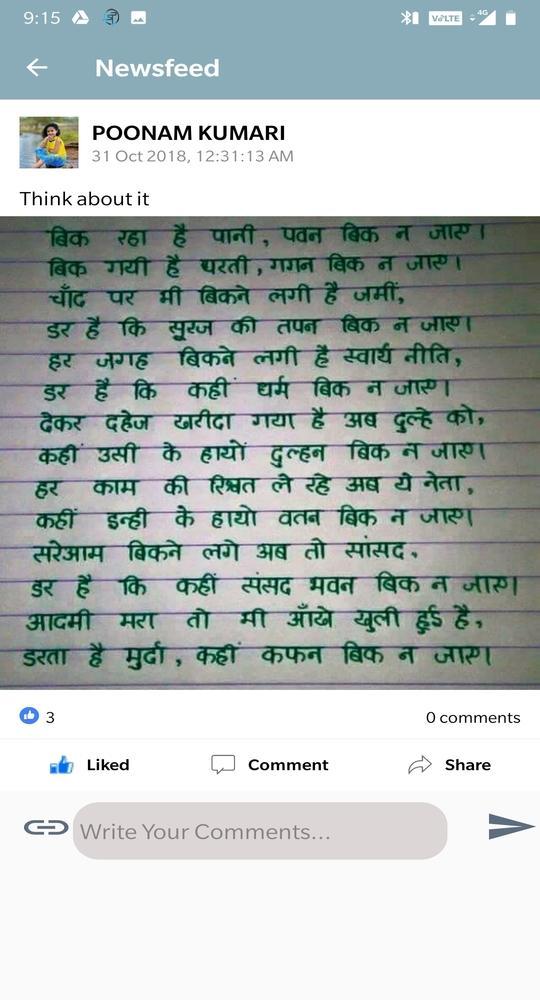 9:15
VoLTE 4G
Newsfeed
POONAM KUMARI
31 Oct 2018, 12:31:13 AM
Think about it
बिक रहा है पानी, पवन बिक न जाए।
बिक गयी है धरती, गगन बिक न जाए।
चाँद पर भी बिकने लगी है जमीं,
डर है कि सूरज की तपन बिक न जाए।
हर जगह बिकने लगी है स्वार्थ नीति,
डर है कि कहीं धर्म बिक न जाए।
देकर दहेज खरीदा गया है अब दुल्हे को,
कहीं उसी के हाथों दुल्हन बिक न जाए।
हर काम की रिश्वत ले रहे अब ये नेता,
कहीं इन्ही के हाथो वतन बिक न जाए।
सरेआम बिकने लगे अब तो सांसद,
डर है कि कहीं संसद भवन बिक न जाए।
आदमी मरा तो भी आँखे खुली हुई है,
डरता है मुर्दा, कहीं कफन बिक न जाए।
3
0 comments
Liked Comment Share
Write Your Comments...